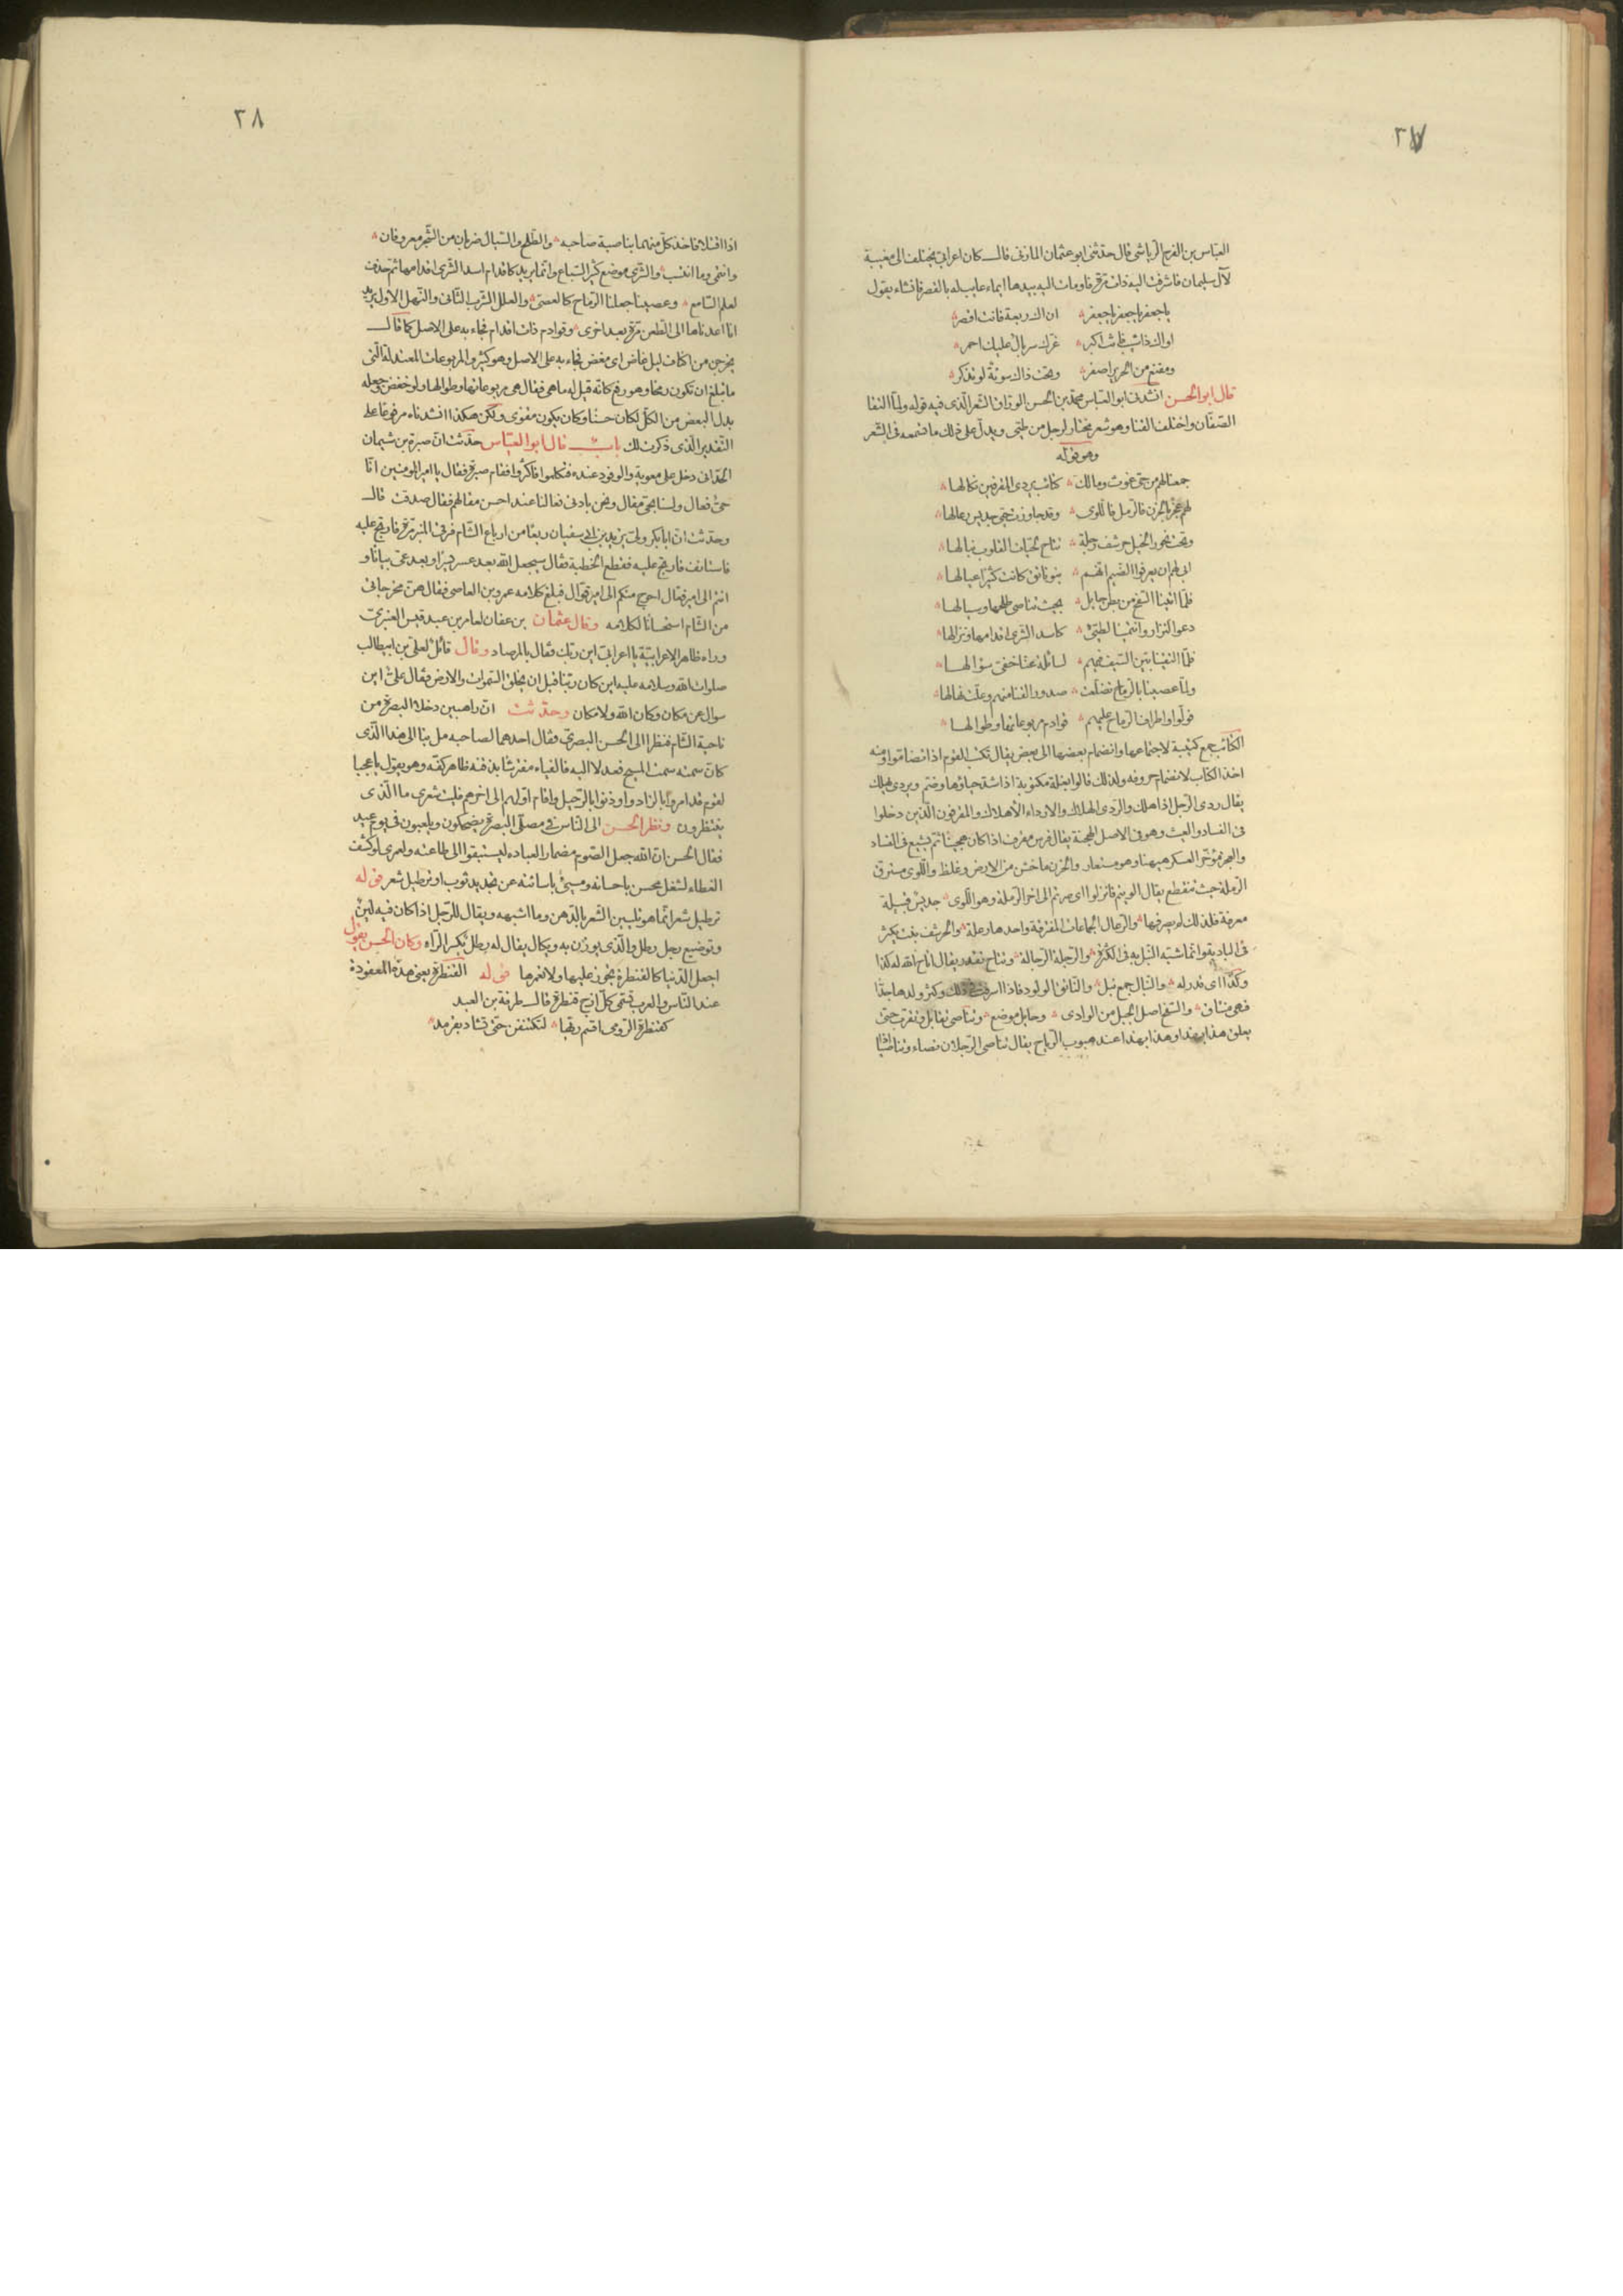 ٣٧
العباس بن الفرج الرياشى قال حدثنى ابو عثمان المازنى قال كان اعرابى يختلف الى مغنية
لآل سليمان فاشرفت اليه ذات مرة فاومات اليه بيدها ايماء عايب له بالقصر فانشاء يقول
ياجعفر ياجعفر ياجعفر ان اك ربعة فانت اقصر
او اك ذا شيب فانت اكبر غرك سربال عليك احمر
ومقنع من الحرير اصفر وتحت ذاك سوئة لو تذكر
قال ابو الحسن انشدنى ابو العباس محمد بن الحسن الوراق الشعر الذى فيه قوله ولما التقا
الصفان واختلف القنا وهو شعر مختار لرجل من طيئ ويدل على ذلك ما نسمعه فى الشعر
وهو قوله
جمعنا لهم من حى غوث ومالك كتائب يردى المقرفين نكالها
لهم عجز بالحزن فالرمل فاللوى وقد جاوزت حيى جديس رعالها
وتحت نحور الخيل حرشف رجلة تتاح لحبات القلوب نبالها
ابى لهم ان يعرفوا الضيم انهم بنو ناتق كانت كثيرا عيالها
فلما اتينا السفح من بطن حايل بحيث تناصى طلحها وسيالها
دعوا لنزار وانتمينا لطيئ كاسد الشرى اقدامها ونزالها
فلما التقينا بين السيف فيهم لسائلة عنا خفى سؤالها
ولما عصينا بالرماح تضلعت صدور القنا منهم وعلت نهالها
فولوا واطراف الرماح عليهم قوادم مربوعاتها وطوالها
الكتائب جمع كتيبة لاجتماعها وانضمام بعضها الى بعض يقال تكتب القوم اذا تضاموا ومنه
اخذ الكتاب لانضمام حروفه ولذلك قالوا بغلة مكتوبة اذا شد حياؤها وضم ويردى يهلك
يقال ردى الرجل اذا هلك والردى الهلاك والارداء الاهلاك والمقرفون الذين دخلوا
فى الفساد والعيث وهو فى الاصل الهجنة يقال فرس مقرف اذا كان هجينا ثم يشبع فى الفساد
والعجز مؤخر العسكر هيهنا وهو مستعار والحزن ما خشن من الارض وغلظ واللوى مسترق
الرملة حيث تنقطع يقال الويتم فانزلوا اى صرتم الى اخر الرملة وهو اللوى جديس قبيلة
معرفة فلذلك لم يصرفها والرعال الجماعات المفترقة واحدها رعلة والحرشف نبت يكثر
فى البادية وانما شبه النبل به فى الكثرة والرجلة الرجالة وتتاح تقدر يقال اتاح الله له كذا
وكذا اى قدر له والنبال جمع نبل والناتق الولود فاذا اسرفت فى ذلك وكثر ولدها جدا
فهى منتاق والسفح اصل الجبل من الوادى وحايل موضع وتناصى تقابل وتقرب حتى
يعلق هذا بهذا وهذا بهذا عند هبوب الرياح يقال تناصى الرجلان نصاء وتناصيا
٣٨
اذا اقتتلا فاخذ كل منهما بناصية صاحبه والطلح والسيال ضربان من الشجر معروفان
وانتمى وما انتسب والشرى موضع كثير السباع وانما يريد كاقدام اسد الشرى اقدامها ثم حذف
لعلم السامع وعصينا جعلنا الرماح كالعصى والعلل الشرب الثانى والنهل الاول يريد
انا اعدناها الى الطعن مرة بعد اخرى وقوادم ذات اقدام نجاء به على الاصل كما قال
يخرجن من اكناف ليل غاض اى مغض نجاء به على الاصل وهو كثير والمربوعات المعتدلة التى
ما تبلغ ان تكون رمحا وهو رفع كانه قيل له ماهى فقال هى مربوعاتها وطوالها ولو خفض جعله
بدل البعض من الكل لكان حسنا وكان يكون مقوى ولكن هكذا انشدناه مرفوعا على
التقدير الذى ذكرت لك باب قال ابو العباس حدثت ان صبرة بن شيمان
الحدانى دخل على معوية والوفود عنده فتكلموا فاكثروا فقام صبرة فقال يا امير المومنين انا
حى فعال ولسنا بحى مقال ونحن بادنى فعالنا عند احسن مقالهم فقال صدقت قال
وحدثت ان ابا بكر ولى يزيد بن ابى سفيان ربعا من ارباع الشام فرقى المنبر مرة فارتج عليه
فاستانف فارتج عليه فقطع الخطبة فقال سيجعل الله بعد عسر يسرا وبعد عى بيانا و
انتم الى امير فعال احوج منكم الى امير قوال فبلغ كلامه عمرو بن العاصى فقال هن مخرجاتى
من الشام استحسانا لكلامه وقال عثمان بن عفان لعامر بن عبد قيس العنبرى
وراه ظاهر الاعرابية يا اعرابى اين ربك فقال بالمرصاد وقال قائل لعلى بن ابيطالب
صلوات الله وسلامه عليه اين كان ربنا قبل ان يخلق السموات والارض فقال على اين
سوال عن مكان وكان الله ولا مكان وحدثت ان راهبين دخلا البصرة من
ناحية الشام فنظرا الى الحسن البصرى فقال احدهما لصاحبه مل بنا الى هذا الذى
كان سمته سمت المسيح فعدلا اليه فالفياه مفترشا بذقنه ظاهر كفه وهو يقول ياعجبا
لقوم قد امروا بالزاد واوذنوا بالرحيل واقام اولهم الى اخرهم فليت شعرى ما الذى
ينتظرون ونظر الحسن الى الناس فى مصلى البصرة يضحكون ويلعبون فى يوم عيد
فقال الحسن ان الله جعل الصوم مضمار العباده ليستبقوا الى طاعته ولعمرى لو كشف
الغطاء لشغل محسن باحسانه ومسيئ باسائته عن تجديد ثوب او ترطيل شعر قوله
ترطيل شعر انما هو تليين الشعر بالدهن وما اشبهه ويقال للرجل اذا كان فيه لين
وتوضيع رجل رطل والذى يوزن به ويكال يقال له رطل بكسر الراء وكان الحسن يقول
اجعل الدنيا كالقنطرة تجوز عليها ولا تعمرها قوله القنطرة يعنى هذه المعقودة
عند الناس والعرب تسمى كل ازج قنطرة قال طرفة بن العبد
كقنطرة الرومى اقسم ربها لتكتنفن حتى تشاد بقرمد